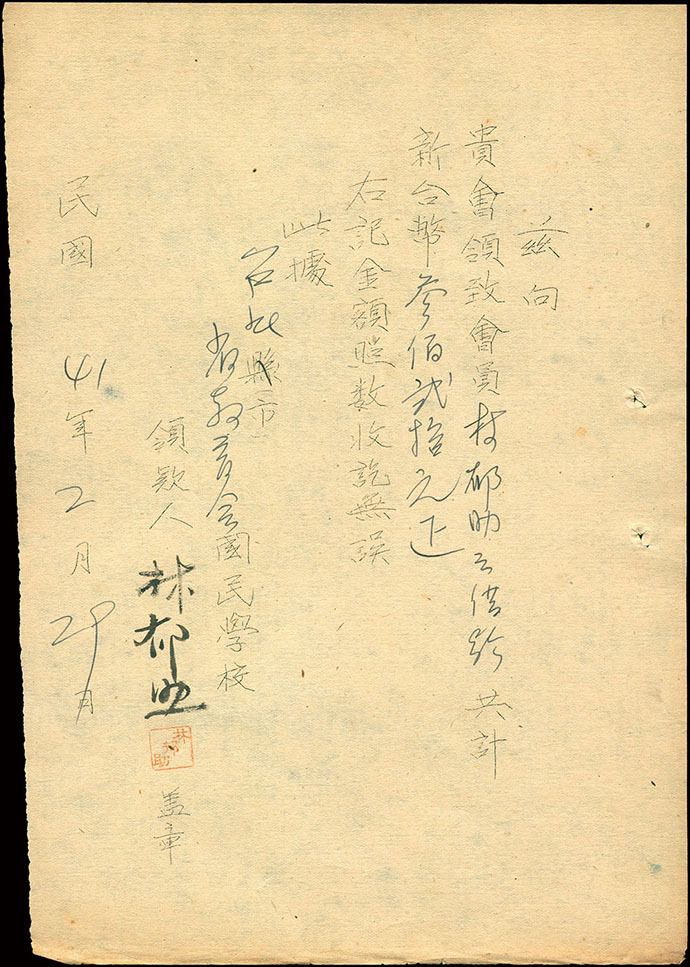 茲向
貴會領致會員林郁助之借款共計
新台幣參佰貳拾元正
右記金額照数收訖無誤
此據
台北縣市
省教育会國民學校
領款人 林郁助 林郁助 盖章
民國 41年2月29日